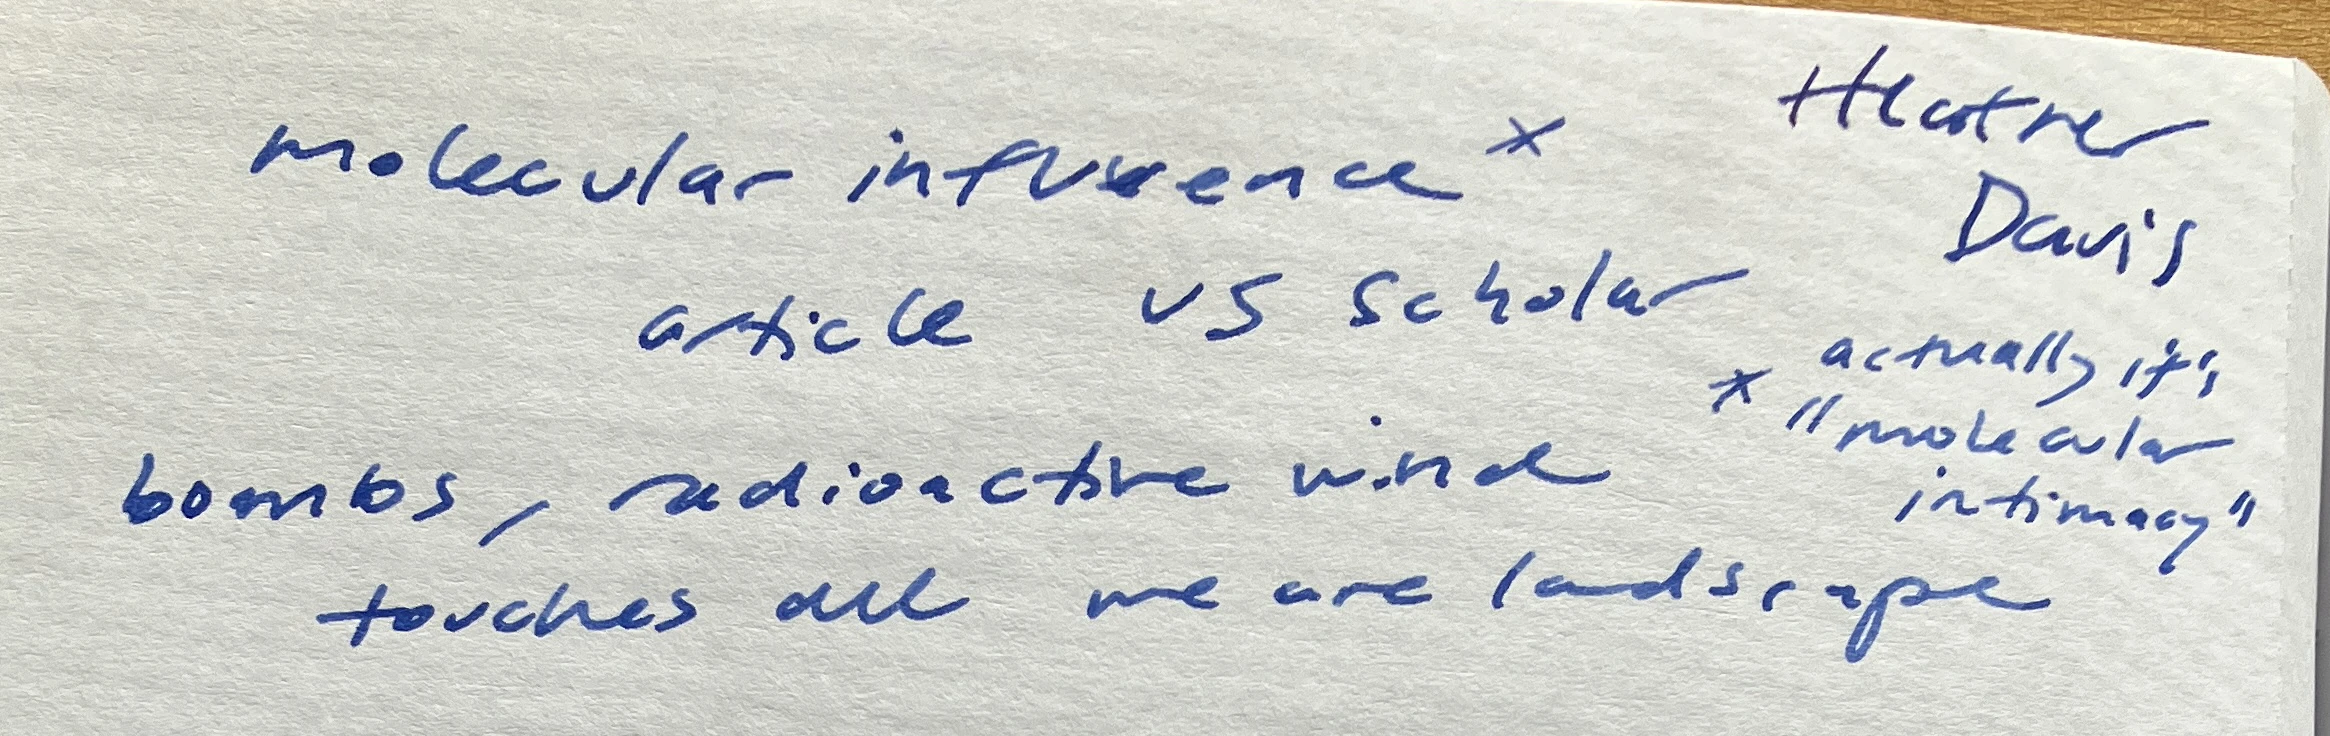 molecular influence *
Heather
Davis
article vs scholar
* actually it's
"molecular
intimacy"
bombs, radioactive wind
touches all we are landscape